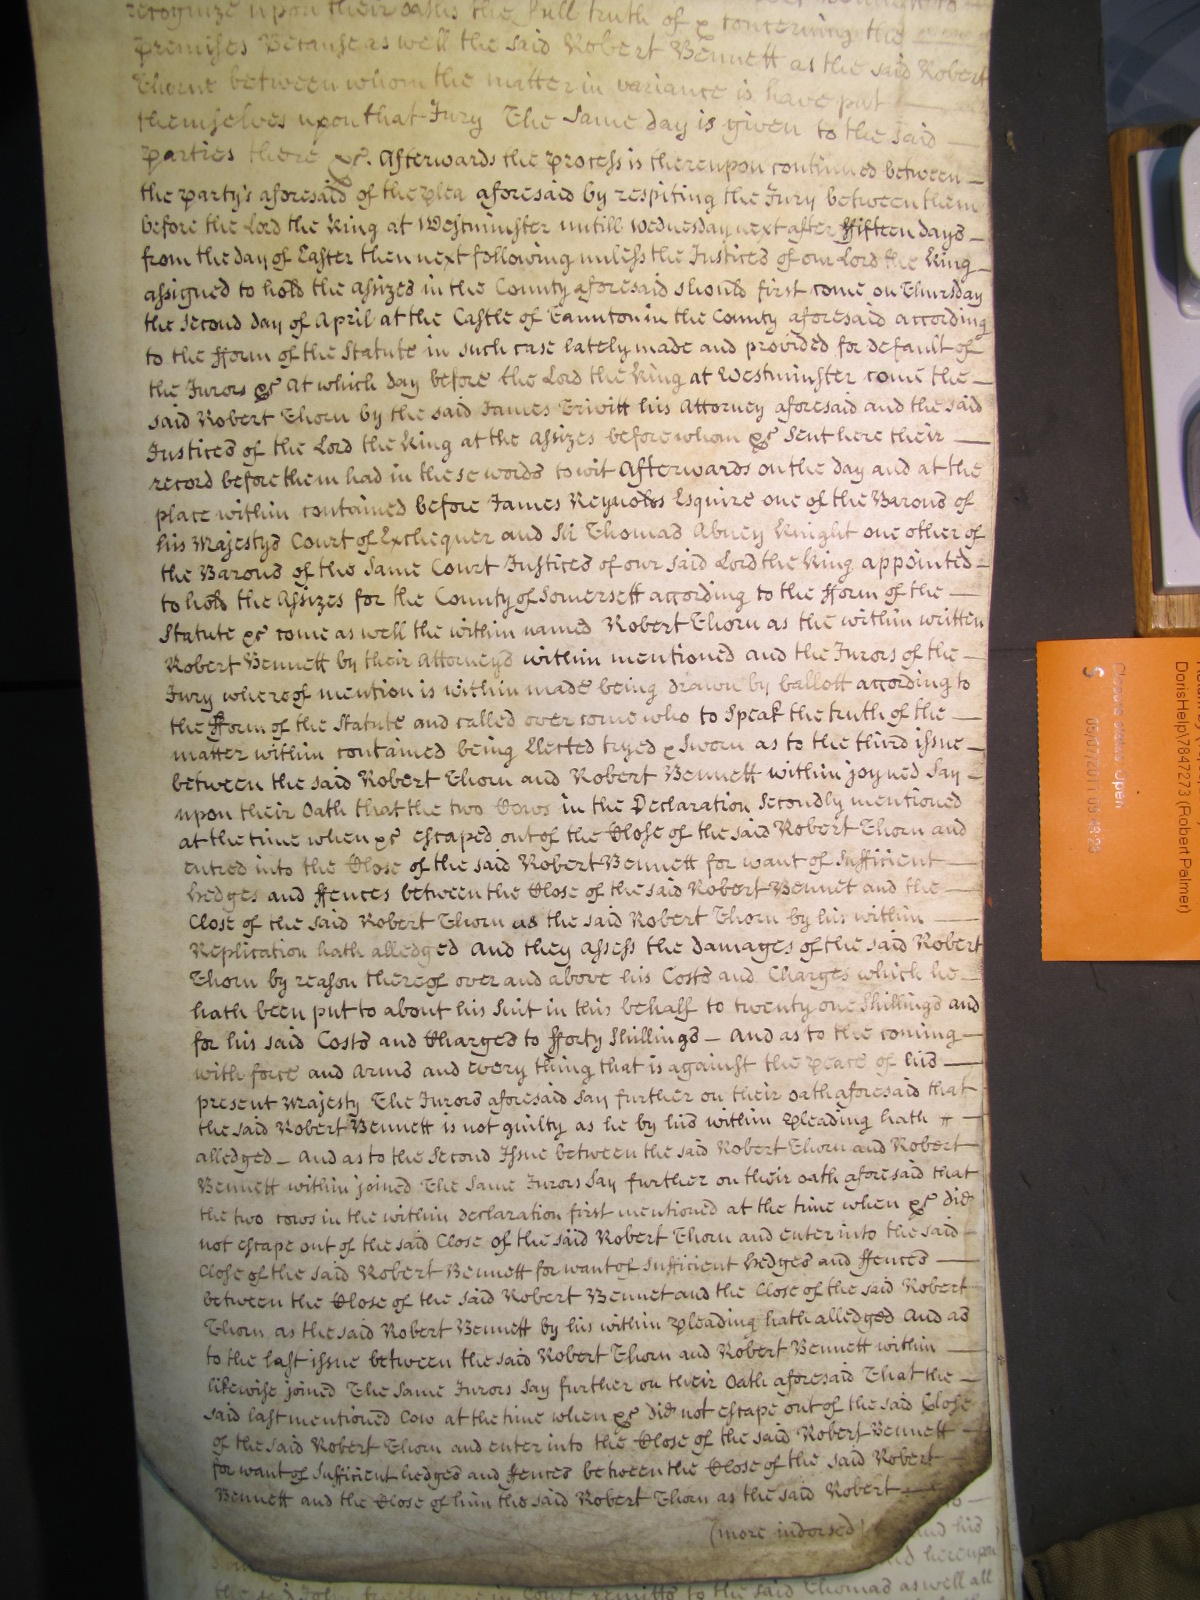 recognize upon their oaths the full truth of & concerning the
premises Because as well the said Robert Bennett as the said Robert
Thorne between whom the matter in variance is have put
themselves upon that Jury The Same day is given to the said
parties there &c. Afterwards the process is thereupon continued between
the party's aforesaid of the plea aforesaid by respiting the Jury between them
before the Lord the King at Westminster untill Wednesday next after ffifteen days
from the day of Easter then next following unless the Justices of our Lord the King
assigned to hold the Assizes in the County aforesaid should first come on Thursday
the Second day of April at the Castle of Taunton in the County aforesaid according
to the fform of the Statute in such case lately made and provided for default of
the Jurors &c At which day before the Lord the King at Westminster come the
said Robert Thorn by the said James Trivitt his Attorney aforesaid and the said
Justices of the Lord the King at the Assizes before whom &c Sent here their
record before them had in these words to wit Afterwards on the day and at the
place within contained before James Reynolds Esquire one of the Barons of
his Majestys Court of Exchequer and Sir Thomas Abney Knight one other of
the Barons of the Same Court Justices of our said Lord the King appointed
to hold the Assizes for the County of Somersett according to the fform of the
Statute &c come as well the within named Robert Thorn as the within written
Robert Bennett by their Attorneys within mentioned and the Jurors of the
Jury whereof mention is within made being drawn by ballott according to
the fform of the Statute and called over come who to Speak the truth of the
matter within contained being Elected tryed & Sworn as to the third issue
between the said Robert Thorn and Robert Bennett within joyned Say
upon their Oath that the two Cows in the Declaration Secondly mentioned
at the time when &c escaped out of the Close of the said Robert Thorn and
entred into the Close of the said Robert Bennett for want of Sufficient
hedges and ffences between the Close of the said Robert Bennet and the
Close of the said Robert Thorn as the said Robert Thorn by his within
Replication hath alledged And they assess the damages of the said Robert
Thorn by reason thereof over and above his Costs and Charges which he
hath been put to about his Suit in this behalf to twenty one Shillings and
for his said Costs and Charges to fforty Shillings And as to the coming
with force and Arms and every thing that is against the peace of his
present Majesty The Jurors aforesaid Say further on their oath aforesaid that
the said Robert Bennett is not guilty as he by his within pleading hath
alledged And as to the Second Issue between the said Robert Thorn and Robert
Bennett within joined The Same Jurors Say further on their oath aforesaid that
the two cows in the within declaration first mentioned at the time when &c did
not escape out of the said Close of the said Robert Thorn and enter into the said
Close of the said Robert Bennett for want of Sufficient hedges and ffences
between the Close of the said Robert Bennet and the Close of the said Robert
Thorn as the said Robert Bennett by his within pleading hath alledged And as
to the last issue between the said Robert Thorn and Robert Bennett within
likewise joined The Same Jurors Say further on their Oath aforesaid That the
said last mentioned Cow at the time when &c did not escape out of the said Close
of the said Robert Thorn and enter into the Close of the said Robert Bennett
for want of Sufficient hedges and ffences between the Close of the said Robert
Bennett and the Close of him the said Robert Thorn as the said Robert
(more indorsed) and his
hereupon
the said John freely here in Court remitts to the said Thomas as well all
DorisHelp\7847273 (Robert Palmer)
05/07/2011 09:48:23